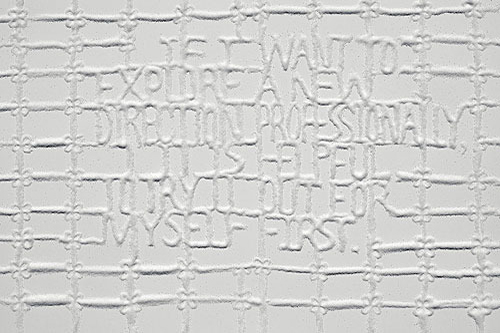 IF I WANT TO
EXPLORE A NEW
DIRECTION PROFESSIONALLY,
IT IS HELPFUL
TO TRY IT OUT FOR
MYSELF FIRST.